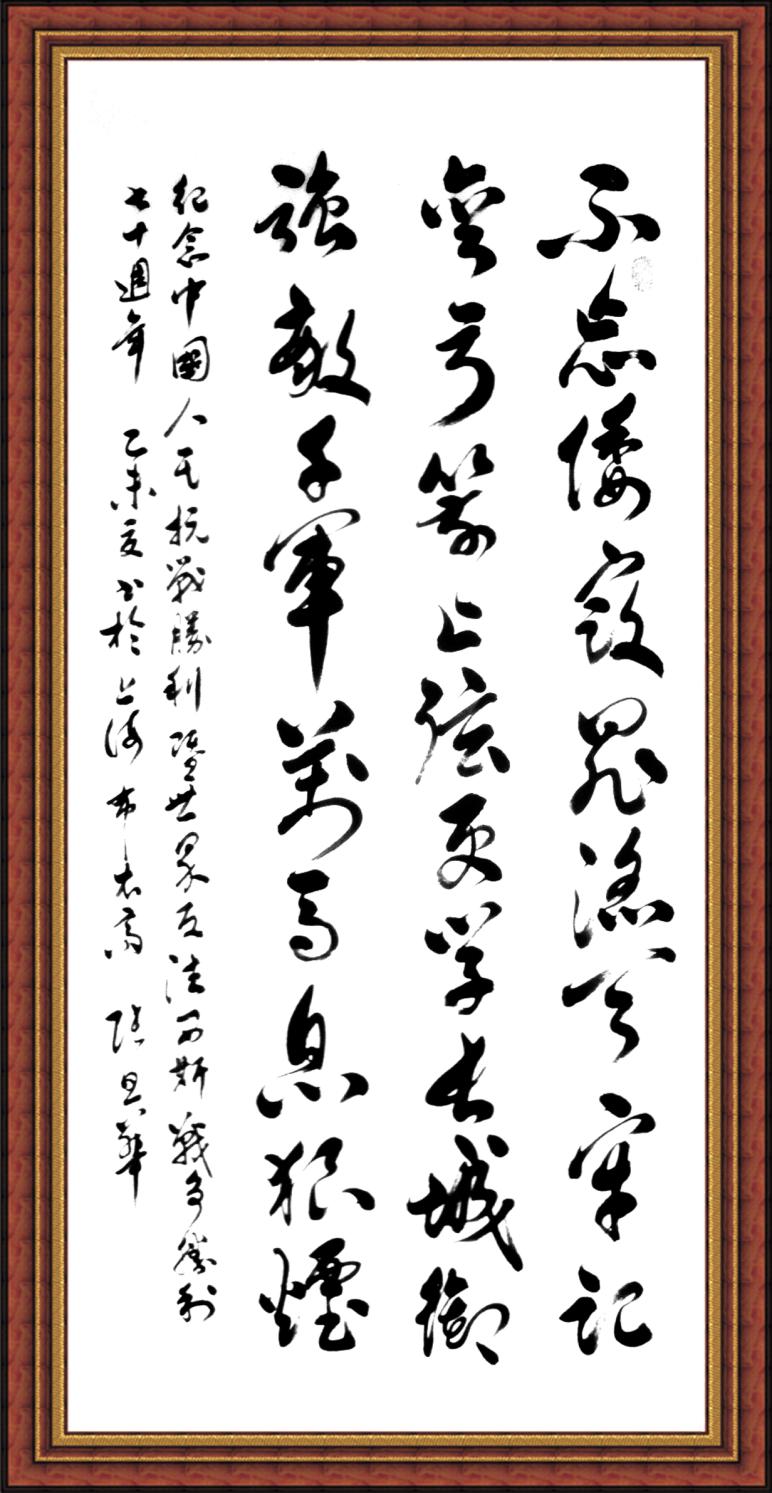 不忘倭寇罪滔天牢記
彎弓箭上弦更学长城御
強敵千軍萬馬息狼煙
紀念中國人民抗戰勝利暨世界反法西斯戰爭勝利
七十週年 乙未夏书於上海 華